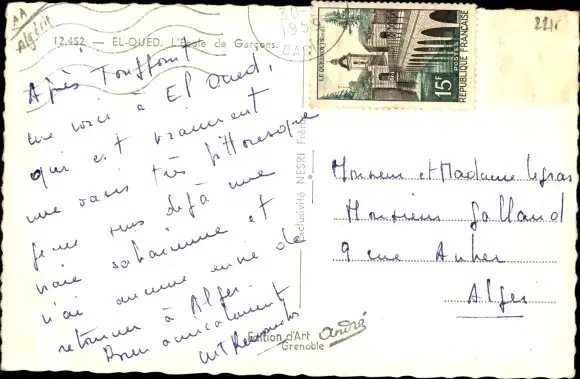 AA
Algérie
12.452 — EL-OUED. L'Ecole de Garçons.
Après Touggourt
me voici à El Oued,
qui est vraiment
une oasis très pittoresque
je me sens déjà une
vraie saharienne et
n'ai aucune envie de
retourner à Alger.
Bien amicalement
Exclusivité NESRI Frères
Edition d'Art
André
Grenoble
LE QUESNOY
15F
POSTES
REPUBLIQUE FRANÇAISE
Monsieur et Madame Legras
Monsieur Galland
9 rue Auber
Alger